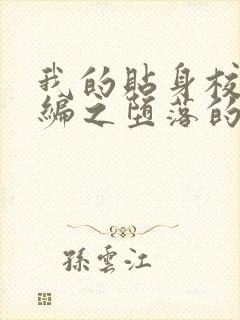 我的貼身校
編之墮落的
孫雲江